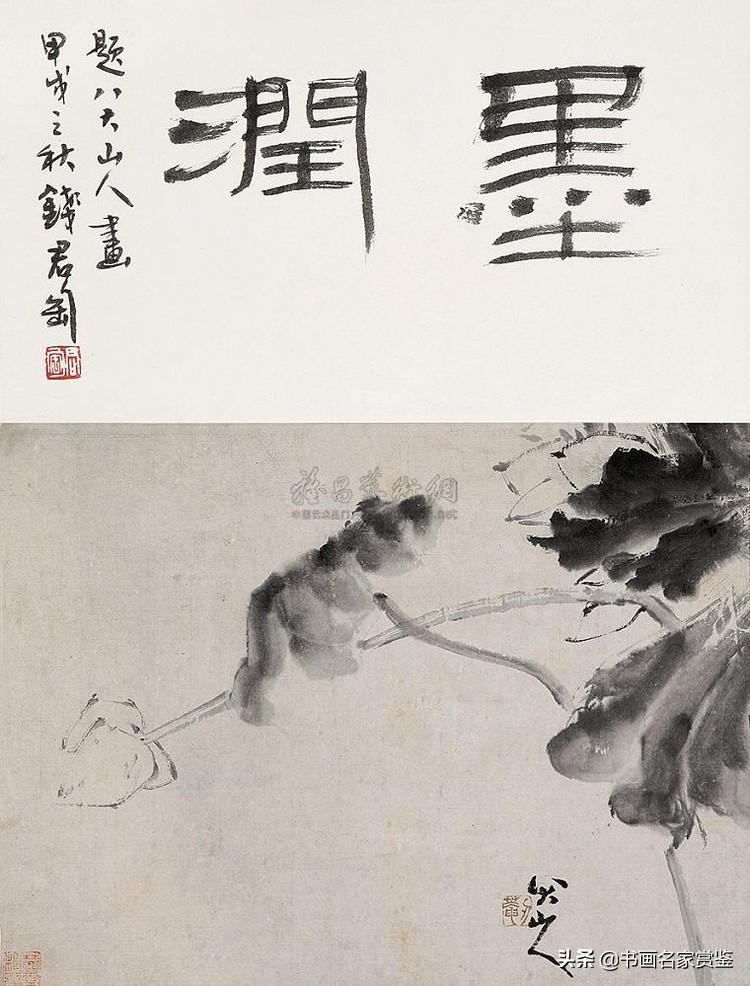 墨潤
題八大山人畫
甲戌之秋錢君匋
八大山人
头条 @书画名家赏鉴